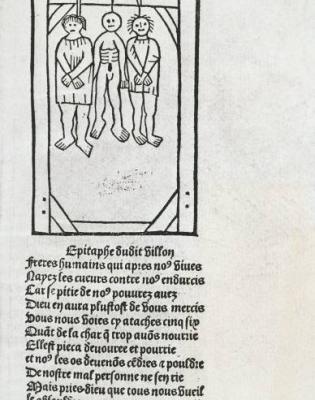 Epitaphe dudit villon
Freres humains qui apres noꝰ viues
Nayez les cueurs contre noꝰ endurcis
Car se pitie de noꝰ pouurez auez
Dieu en aura plustost de vous mercis
Vous nous voies cy ataches cinq six
Quãt de la char q̃ trop auõs nourrie
Ellest pieca deuouree et pourrie
et noꝰ les os deuenõs cẽdres a pouldre
De nostre mal personne ne sen rie
Mais pries dieu que tous nous vueil
le absoul